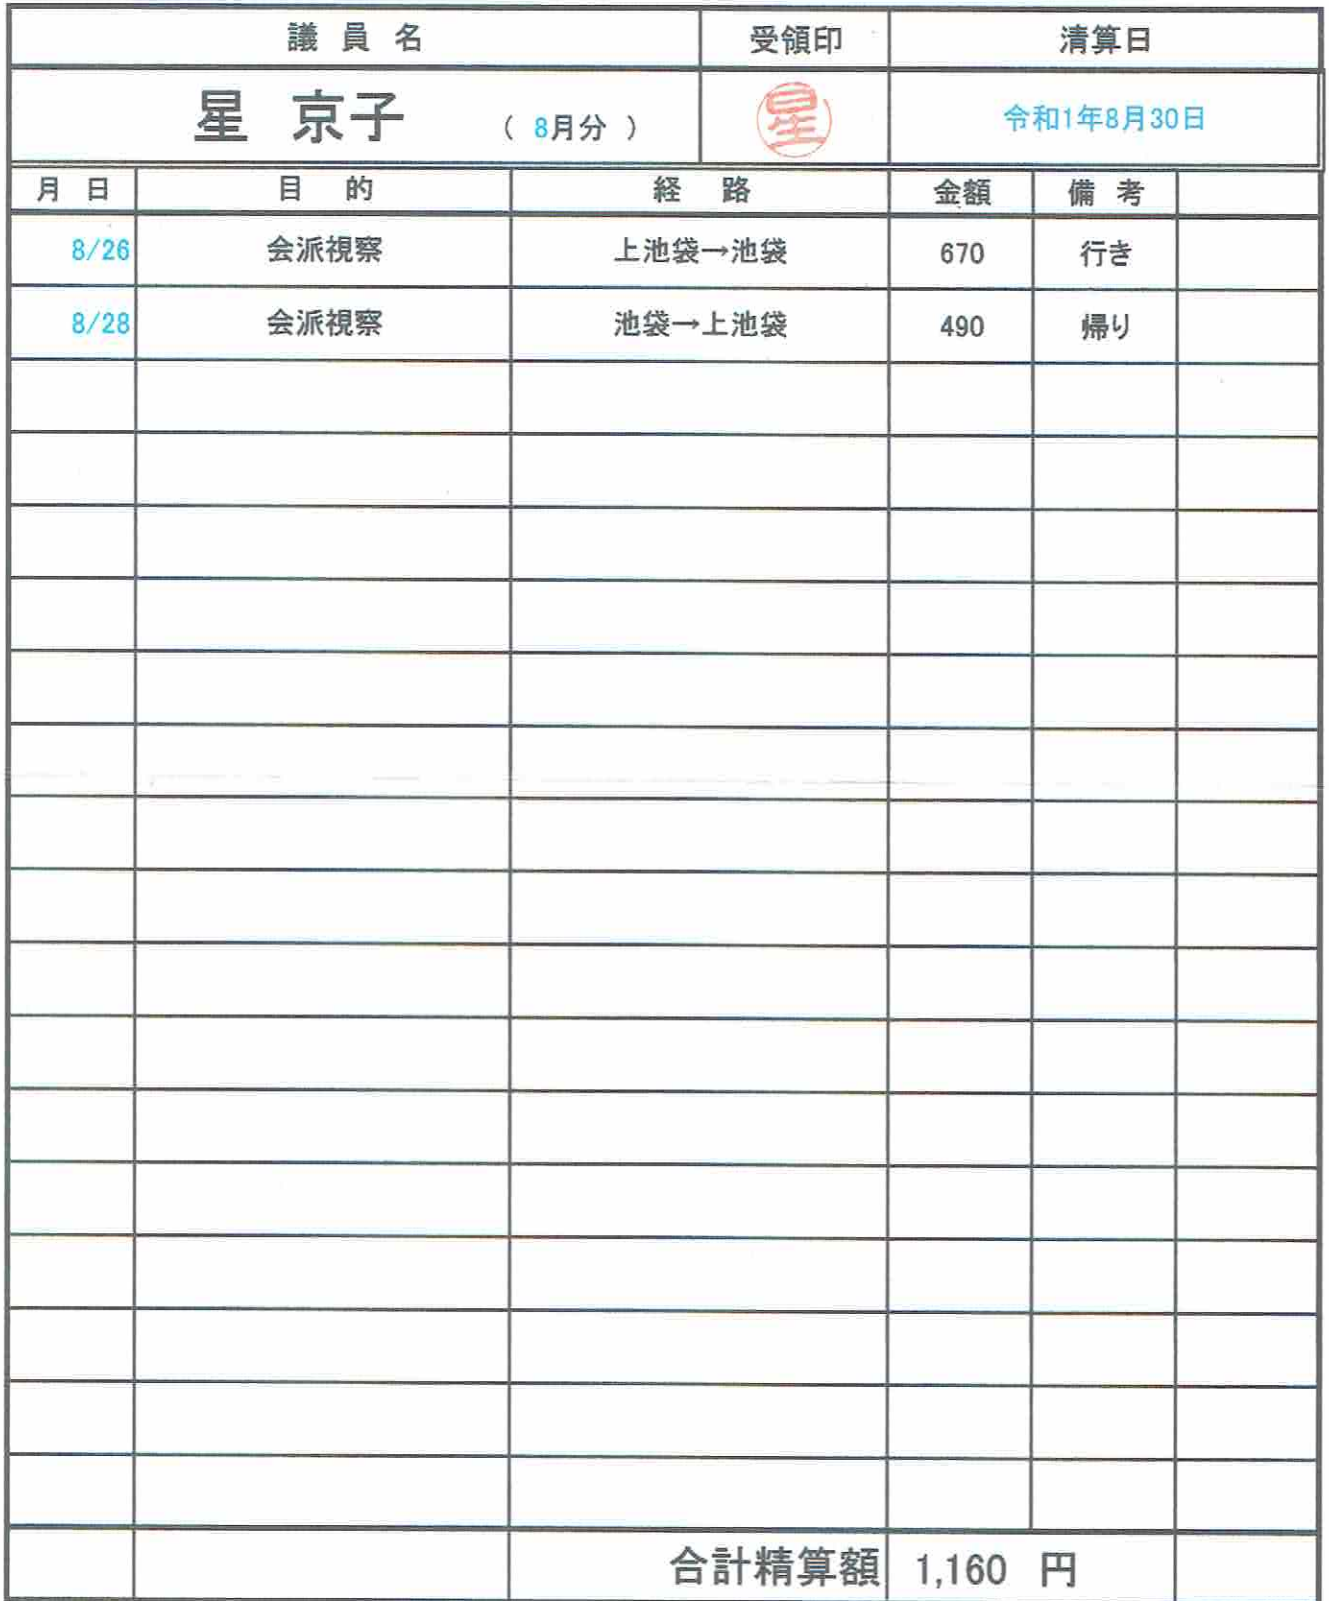 議員名 受領印 清算日
星 京子 （ 8月分 ） 星 令和1年8月30日
月日 目的 経路 金額 備考
8/26 会派視察 上池袋→池袋 670 行き
8/28 会派視察 池袋→上池袋 490 帰り
合計精算額 1,160 円